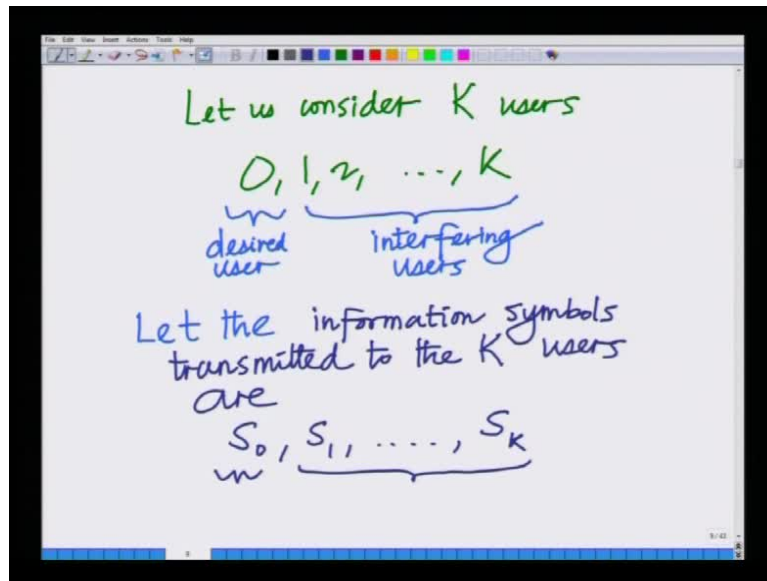 File Edit View Insert Actions Tools Help
Let us consider K users
0, 1, 2, ...., K
desired user
interfering users
Let the information symbols
transmitted to the K users
are
S0, S1, ...., SK
9/43
9